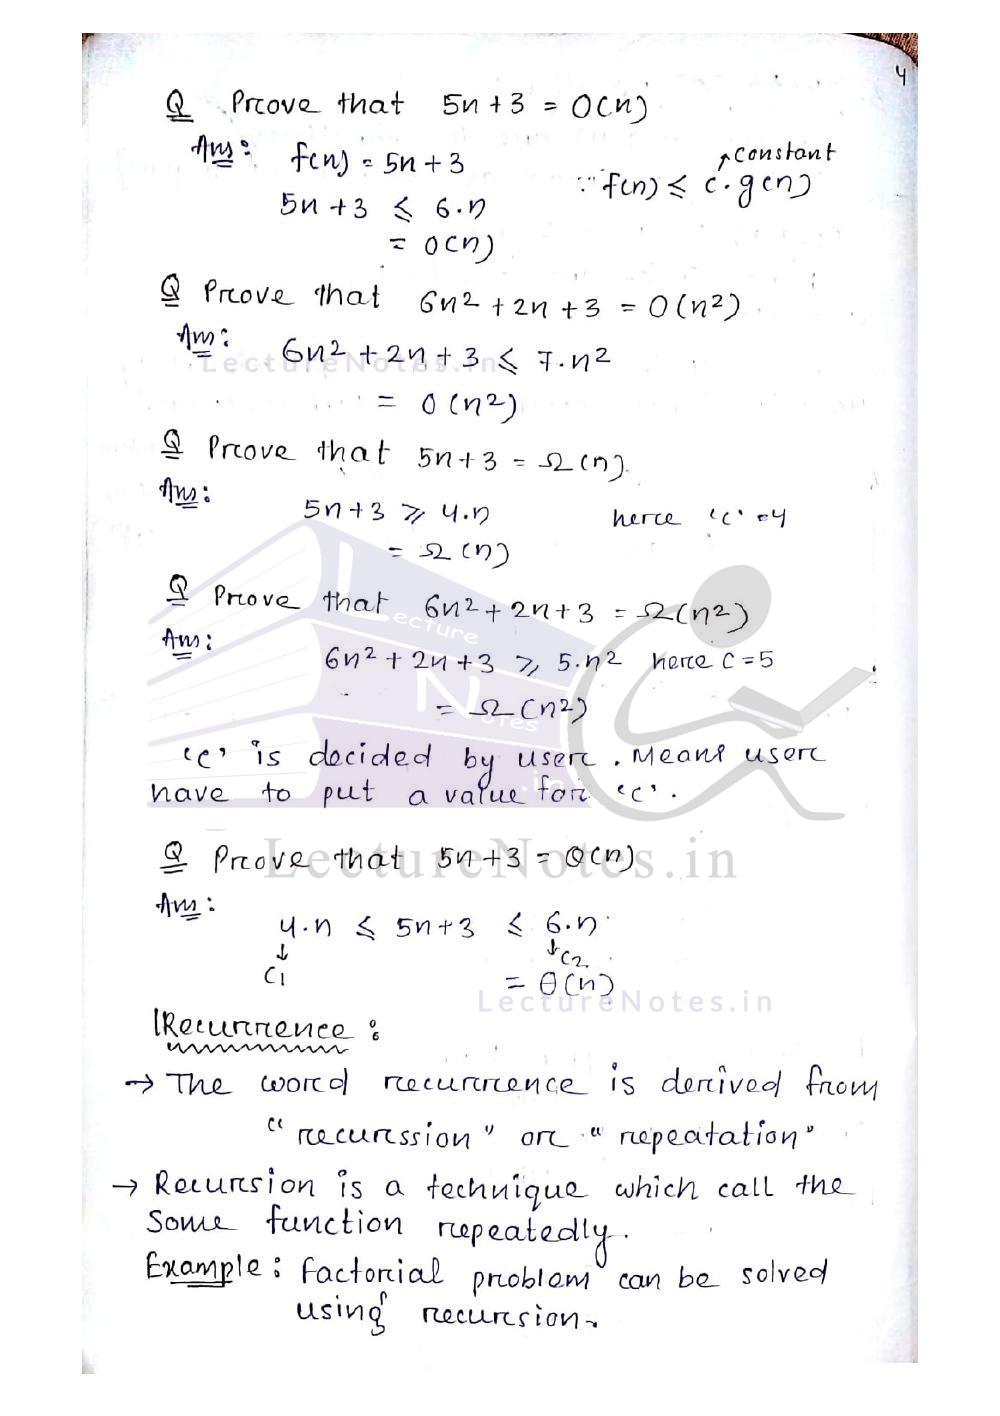 4
Q Prove that 5n + 3 = O(n)
Ans: f(n) = 5n + 3
constant
∵ f(n) ≤ c.g(n)
5n + 3 ≤ 6.n
= O(n)
Q Prove that 6n² + 2n + 3 = O(n²)
Ans: 6n² + 2n + 3 ≤ 7.n²
LectureNotes.in
= O(n²)
Q Prove that 5n + 3 = Ω(n).
Ans:
5n + 3 ≥ 4.n here 'c' = 4
= Ω(n)
Q Prove that 6n² + 2n + 3 = Ω(n²)
Lecture
Ans:
6n² + 2n + 3 ≥ 5.n² here c = 5
Notes
= Ω(n²)
'c' is decided by user. Means user
.in
have to put a value for 'c'.
Q Prove that 5n + 3 = θ(n)
LectureNotes.in
Ans:
4.n ≤ 5n + 3 ≤ 6.n
↓ ↓
C1 C2
= θ(n)
LectureNotes.in
Recurrence:
→ The word recurrence is derived from
"recurssion" or "repeatation"
→ Recursion is a technique which call the
some function repeatedly.
Example: factorial problem can be solved
using recursion.